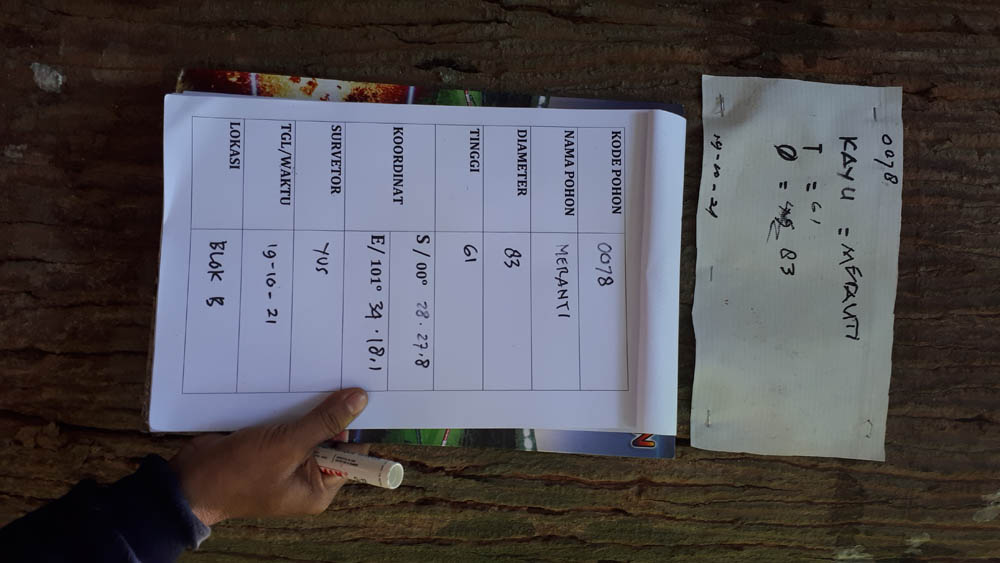 0078
KAYU = MERANTI
T = 61
Ø = 83
19-10-21
KODE POHON 0078
NAMA POHON MERANTI
DIAMETER 83
TINGGI 61
KOORDINAT
S / 00° 28.27.8
E/ 101° 34.18.1
SURVETOR YUS
TGL/WAKTU 19-10-21
LOKASI BLOK B